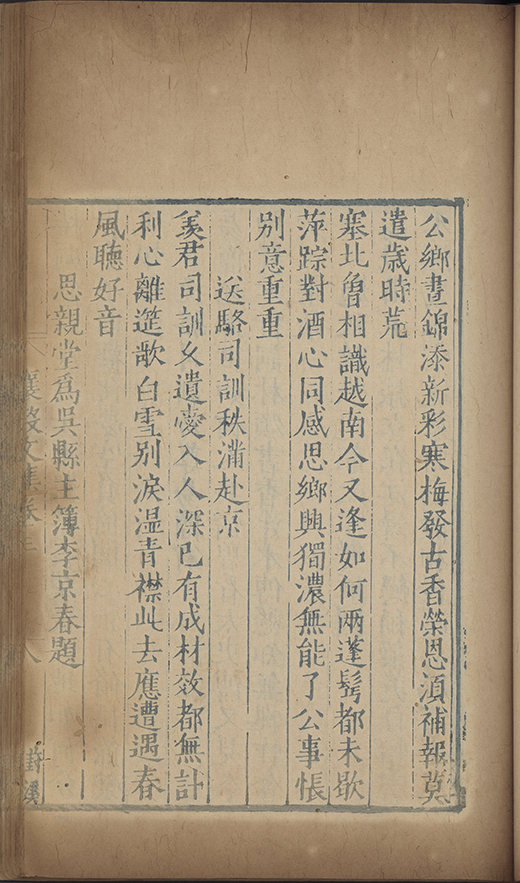 公鄉晝錦添新彩寒梅發古香榮恩湏補報莫
遣歲時荒
塞北曾相識越南今又逢如何兩蓬髩都未歇
萍踪對酒心同感思鄉興獨濃無能了公事悵
别意重重
送駱司訓秩滿赴京
羡君司訓乆遺愛入人深巳有成材效都無計
利心離筵歌白雪别淚湿青襟此去應遭遇春
風聽好音
思親堂爲吳縣主簿李京春題
襄毅文集卷三 八 葑溪